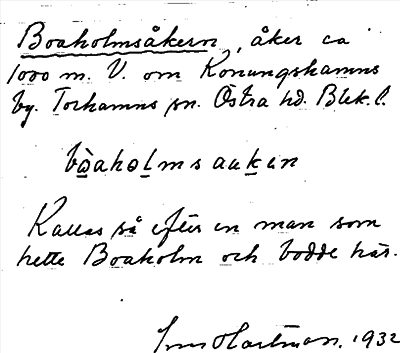 Boaholmsåkern, åker ca
1000 m. V. om Konungshamns
by. Torhamns sn. Östra hd. Blek. l.
bòaholmsaukan
Kallas så efter en man som
hette Boaholm och bodde här.
Hartman. 1932